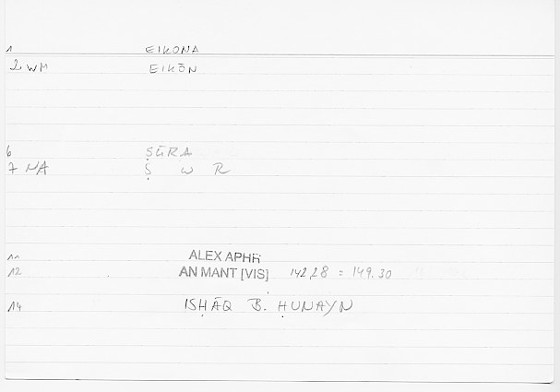 1 EIKONA
2 WM EIKŌN
6 ṢŪRA
7 NA Ṣ W R
11 ALEX APHR
12 AN MANT [VIS] 142,28 = 149.30
14 ISḤĀQ B. ḤUNAYN